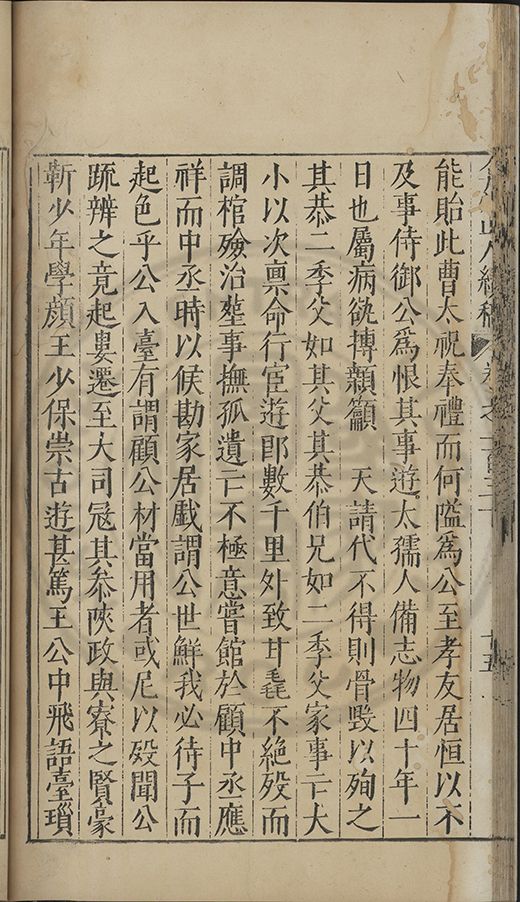 能貽此曹太祝奉禮而何隘為公至孝友居恒以不
及事侍御公爲恨其事游太孺人備志物四十年一
日也屬病欲摶顙籲　天請代不得則骨毀以殉之
其恭二季父如其父其恭伯兄如二季父家事亡大
小以次禀命行宦遊即數千里外致甘毳不絕歿而
調棺殮治塟事撫孤遺亡不極意嘗館於顧中丞應
祥而中丞時以候勘家居戲謂公世鮮我必待子而
起色乎公入臺有謂顧公材當用者或尼以歿聞公
疏辨之竟起婁遷至大司冦其叅陜政與寮之賢豪
靳少年學顏王少保崇古遊甚篤王公中飛語臺瑣
山人續稿 卷之一百三十 十五